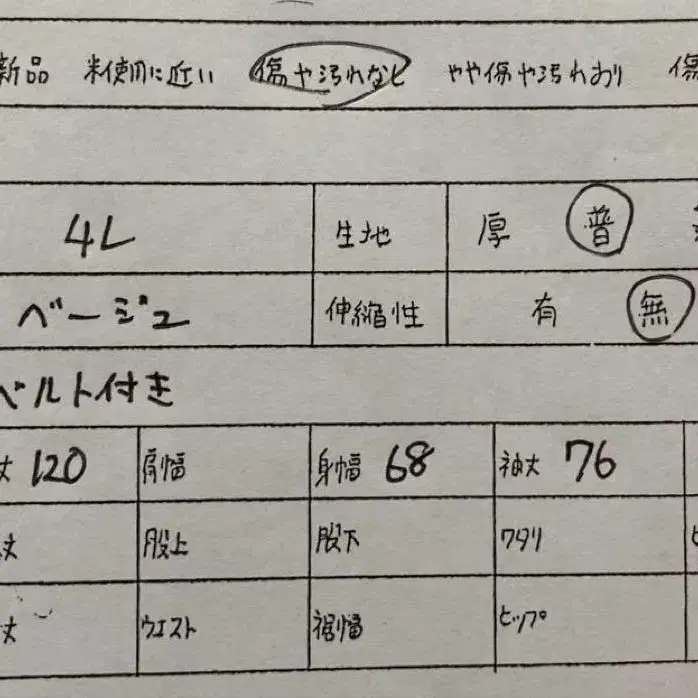 新品 未使用に近い 傷や汚れなし やや傷や汚れあり 傷
4L 生地 厚 普
ベージュ 伸縮性 有 無
ベルト付き
丈 120 肩幅 身幅 68 袖丈 76
丈 股上 股下 ワタリ
丈 ウエスト 裾幅 ヒップ